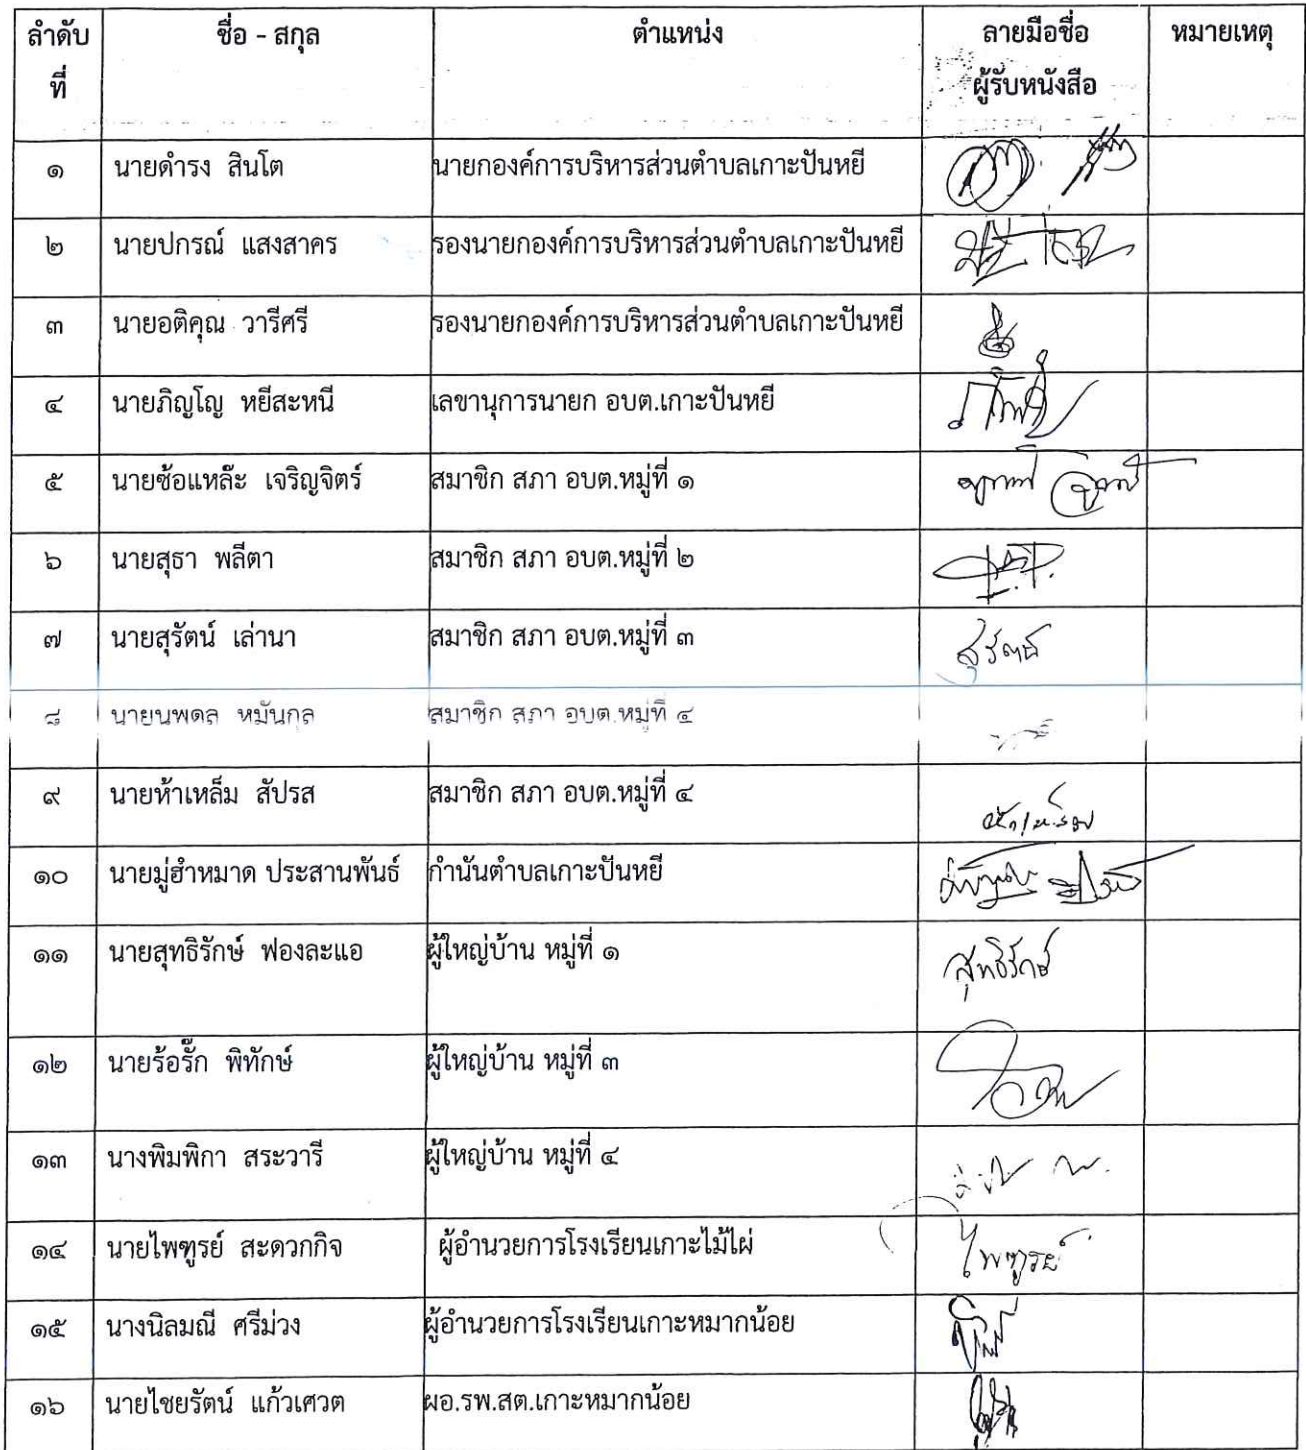 ลำดับ ชื่อ - สกุล ตำแหน่ง ลายมือชื่อ หมายเหตุ
ที่ ผู้รับหนังสือ
๑ นายดำรง สินโต นายกองค์การบริหารส่วนตำบลเกาะปันหยี
๒ นายปกรณ์ แสงสาคร รองนายกองค์การบริหารส่วนตำบลเกาะปันหยี
๓ นายอติคุณ วารีศรี รองนายกองค์การบริหารส่วนตำบลเกาะปันหยี
๔ นายภิญโญ หยีสะหนี เลขานุการนายก อบต.เกาะปันหยี
๕ นายซ้อแหล๊ะ เจริญจิตร์ สมาชิก สภา อบต.หมู่ที่ ๑
๖ นายสุธา พลีตา สมาชิก สภา อบต.หมู่ที่ ๒
๗ นายสุรัตน์ เล่านา สมาชิก สภา อบต.หมู่ที่ ๓ สุรัตน์
๘ นายนพดล หมันกุล สมาชิก สภา อบต.หมู่ที่ ๔
๙ นายห้าเหล็ม สัปรส สมาชิก สภา อบต.หมู่ที่ ๔
๑๐ นายมู่ฮำหมาด ประสานพันธ์ กำนันตำบลเกาะปันหยี
๑๑ นายสุทธิรักษ์ ฟองละแอ ผู้ใหญ่บ้าน หมู่ที่ ๑ สุทธิรักษ์
๑๒ นายร้อรั๊ก พิทักษ์ ผู้ใหญ่บ้าน หมู่ที่ ๓
๑๓ นางพิมพิกา สระวารี ผู้ใหญ่บ้าน หมู่ที่ ๔
๑๔ นายไพฑูรย์ สะดวกกิจ ผู้อำนวยการโรงเรียนเกาะไม้ไผ่ ไพฑูรย์
๑๕ นางนิลมณี ศรีม่วง ผู้อำนวยการโรงเรียนเกาะหมากน้อย
๑๖ นายไชยรัตน์ แก้วเศวต ผอ.รพ.สต.เกาะหมากน้อย